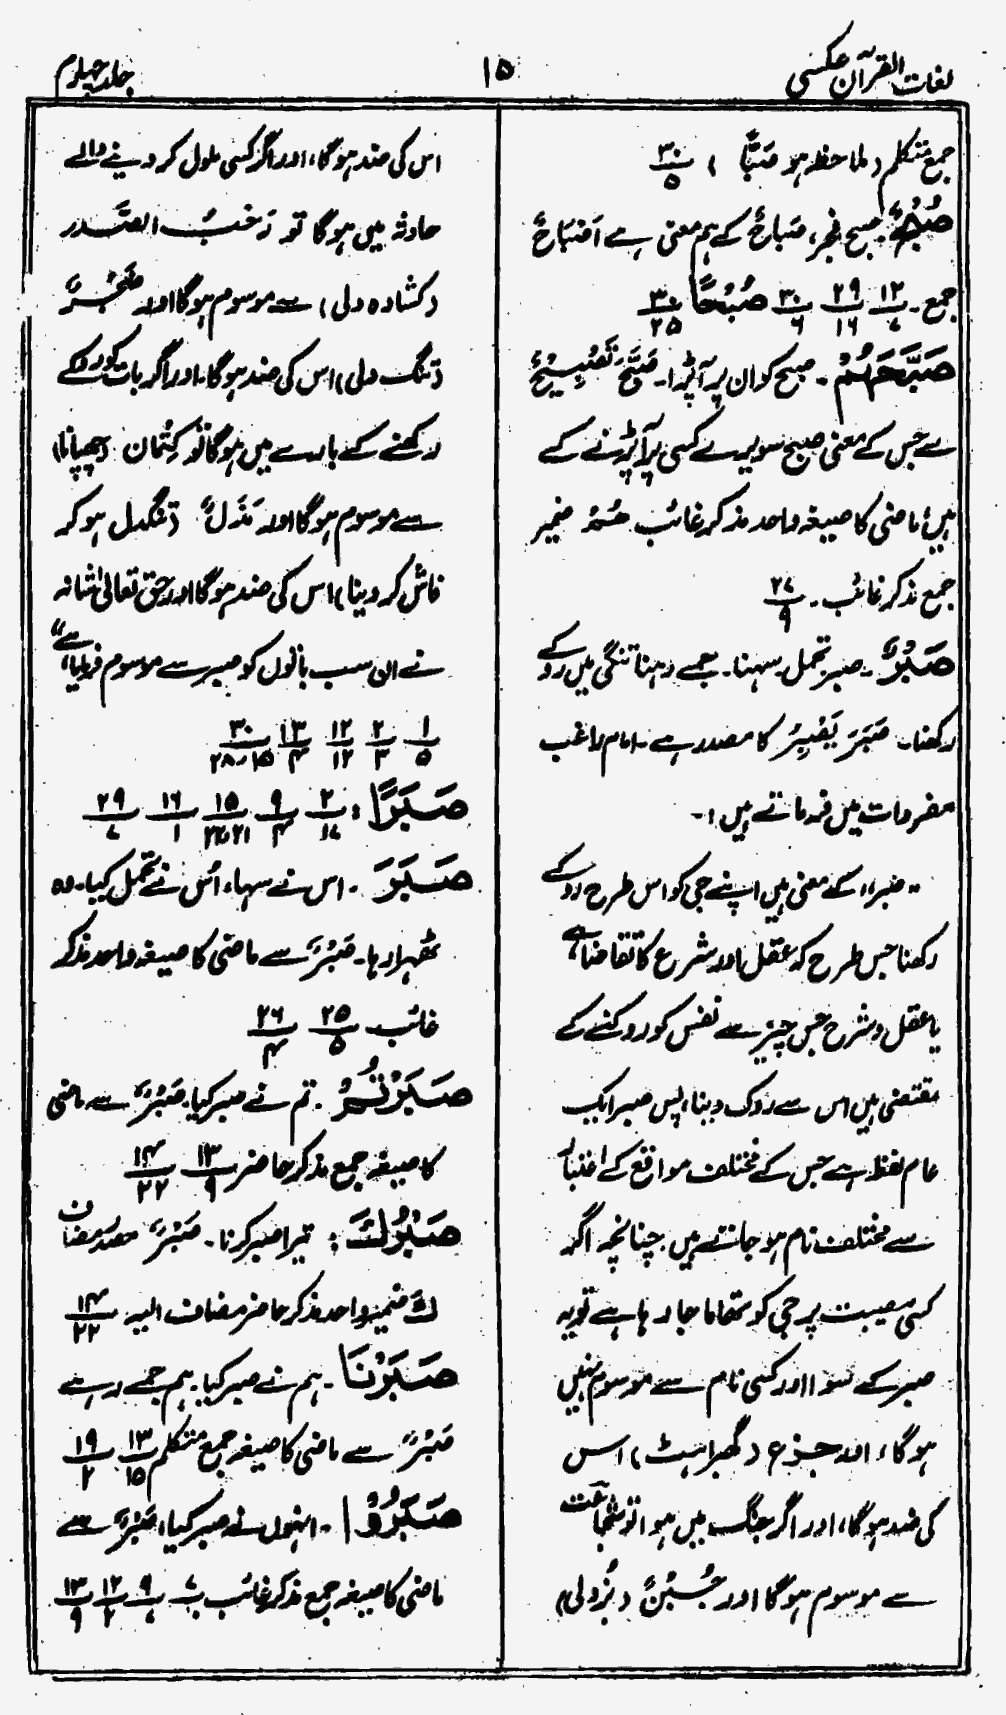 لغات القرآن عکسی
۱۵
جلد چہارم
جمع متکلم (ملاحظہ ہو صَبًّا) ۳۰/۵
صُبْحٌ: صبح، فجر، صَبَاحٌ کے ہم معنی ہے اَصْبَاحٌ
جمع۔ ۱۲/۷ ۲۹/۱۶ ۳۰/۶ صُبْحًا ۳۰/۲۵
صَبَّحَهُمْ۔ صبح کو ان پر آ پڑا۔ صَبَّحَ تَصْبِیْحٌ
سے جس کے معنی صبح سویرے کسی پر آپڑنے کے
ہیں، ماضی کا صیغہ واحد مذکر غائب هُمْ ضمیر
جمع مذکر غائب۔ ۲۷/۹
صَبْرٌ۔ صبر، تحمل۔ سہنا۔ جمے رہنا تنگی میں روکے
رکھنا۔ صَبَرَ یَصْبِرُ کا مصدر ہے۔ امام راغب
مفردات میں فرماتے ہیں:۔
"صبر" کے معنی ہیں اپنے جی کو اس طرح روکے
رکھنا جس طرح کہ عقل اور شرع کا تقاضا ہے
یا عقل و شرح جس چیز سے نفس کو روکنے کے
مقتضی ہیں اس سے روک دینا، پس صبر ایک
عام لفظ ہے جس کے مختلف مواقع کے اعتبار
سے مختلف نام ہو جاتے ہیں چنانچہ اگر
کسی مصیبت پر جی کو تھاما جا رہا ہے تو یہ
صبر کے سوا اور کسی نام سے موسوم نہیں
ہوگا، اور جزع (گھبراہٹ) اس
کی ضد ہوگا، اور اگر جنگ میں ہو تو شجاعت
سے موسوم ہوگا اور جُبْنٌ (بزدلی)
اس کی ضد ہوگا، اور اگر کسی ملول کر دینے والے
حادثہ میں ہوگا تو رحب الصَّدر
(کشادہ دلی) سے موسوم ہوگا اور ضَجْرٌ
(تنگ دلی) اس کی ضد ہوگا۔ اور اگر بات کو روکے
رکھنے کے بارے میں ہوگا تو کِتْمان (چھپانا)
سے موسوم ہوگا اور مَذَلٌ (تنگدل ہو کر
فاش کر دینا) اس کی ضد ہوگا اور حق تعالیٰ شانہ
نے ان سب باتوں کو صبر سے موسوم فرمایا ہے"
۱/۵ ۲/۳ ۱۲/۱۲ ۱۳/۴ ۳۰/۱۵،۲۸
صَبْرًا: ۲/۱۷ ۹/۴ ۱۵/۲۱،۲۲ ۱۶/۱ ۲۹/۷
صَبَرَ۔ اس نے سہا، اُس نے تحمل کیا۔ وہ
ٹھہرا رہا۔ صَبْرٌ سے ماضی کا صیغہ واحد مذکر
غائب ۲۵/۵ ۲۶/۴
صَبَرْتُمْ۔ تم نے صبر کیا۔ صَبْرٌ سے ماضی
کا صیغہ جمع مذکر حاضر ۱۳/۹ ۱۴/۲۲
صَبْرُكَ: تیرا صبر کرنا۔ صَبْرٌ مصدر مضاف
كَ ضمیر واحد مذکر حاضر مضاف الیہ ۱۴/۲۲
صَبَرْنَا۔ ہم نے صبر کیا۔ ہم جمے رہے
صَبْرٌ سے ماضی کا صیغہ جمع متکلم ۱۳/۱۵ ۱۹/۲
صَبَرُوْا۔ انہوں نے صبر کیا، صَبْرٌ سے
ماضی کا صیغہ جمع مذکر غائب ۷ ۹/۷ ۱۲/۲ ۱۳/۹